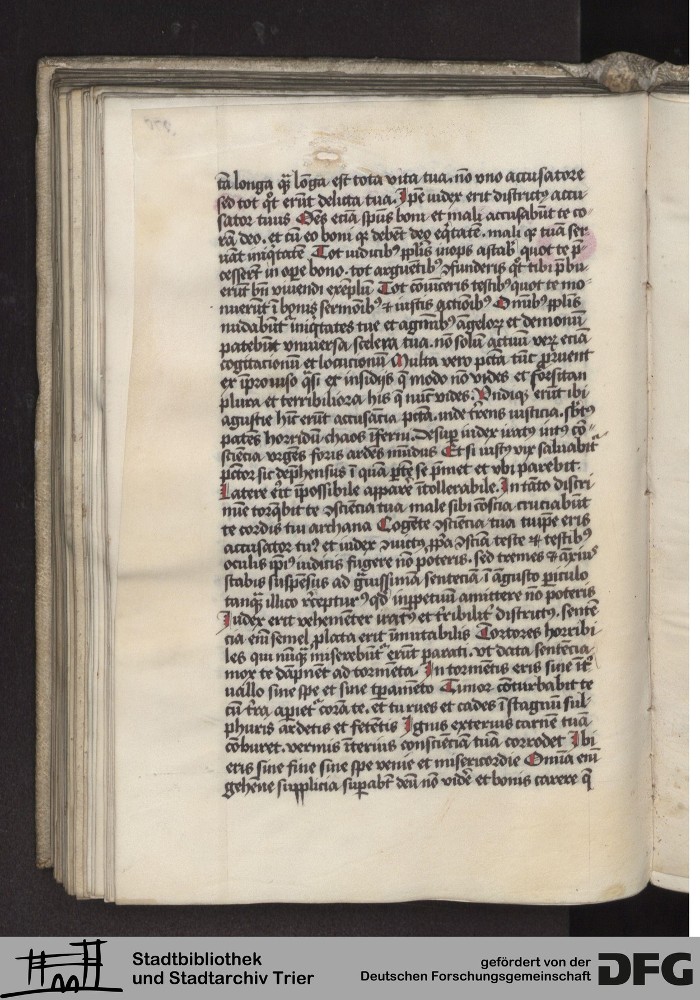 tā longa q̄ȝ lōga est tota vita tua. nō vno accusatore
sed tot q̄t erūt delicta tua. Ip̄e iudex erit districtꝰ accu-
sator tuus Oēs eciā spūs boni et mali accusabūt te co-
rā deo. et cū eo boni qꝛ debēt deo eq̄tatē. mali qꝛ tuā ser
uāt iniq̄tatē Tot iudicibꝰ
cesserūt in oꝑe bono. tot arguētibꝰ ꝯfunderis q̄t tibi p̄bu-
erūt bn̄ viuendi exēplū Tot cōuīceris testibꝰ quot te mo-
nuerūt ī bonis sermōibꝰ et iustis actiōibꝰ Om̄ibꝰ ppl̄is
nudabūt iniq̄tates tue et agmībꝰ āgeloꝝ et demonū
patebūt vniuersa scelera tua. nō solū actuū veꝝ eciā
cogitacionū et locucionū Multa vero pctā tūc ꝓruent
ex īprouiso q̄si et insidijs q̄ modo nō vides et forsitan
plura et terribiliora his q̄ nūc vides. Vndiqꝫ erūt ibi
agustie hīc erūt accusācia pctā. inde t̄rens iusticia. sbtꝰ
patēs horridū chaos īferni. Desuꝑ iudex iratꝰ intꝰ cō-
sciēcia vrgēs foris ardēs mūdus Et si iustꝰ vix saluabit̄
pctor sic dep̄hensus ī quā ꝑtē se p̄met et vbi parebit.
Latere erit īpossibile apparē ītollerabile. In tāto discri
mīe torq̄bit te ꝯsciēcia tua male sibi cōscia cruciabūt
te cordis tui archana Cogēte ꝯsciēcia tua tuip̄e eris
accusator tuꝰ et iudex ꝯuictꝰ ꝓp̄a ꝯsciā teste et testibꝰ
oculis ip̄iꝰ iudicis fugere nō poteris. sed tremes et āxiꝰ
stabis suspēsus ad gͣuissimā sentēciā ī āgusto ꝑiculo
tanq̄ȝ illico r̄cepturꝰ qd̄ inꝑpetuū amittere nō poteris
Iudex erit vehemēter iratꝰ et t̄ribilit̄ districtꝰ. sentē
cia eni semel ꝓlata erit īmutabilis Tortores horribi
les qui nūq̄ȝ miserebūt̄ erūt parati. vt data sentēcia
mox te dāpnēt ad tormēta. In tormētis eris sine īt̄
uallo sine spe et sine tꝑamēto Timor cōturbabit te
cū t̄ra aꝑiet̄ corā te. et tu rues et cades ī stagnū sul-
phuris ardētis et fetētis Ignis exterius carnē tuā
cōburet. vermis īterius consciēciā tuā corrodet Ibi
eris sine fine sine spe venie et misericordie Om̄ia eni
gehene supplicia suꝑabt̄ deū nō vidē et bonis carere q̄
Stadtbibliothek
und Stadtarchiv Trier
gefördert von der
Deutschen Forschungsgemeinschaft
DFG